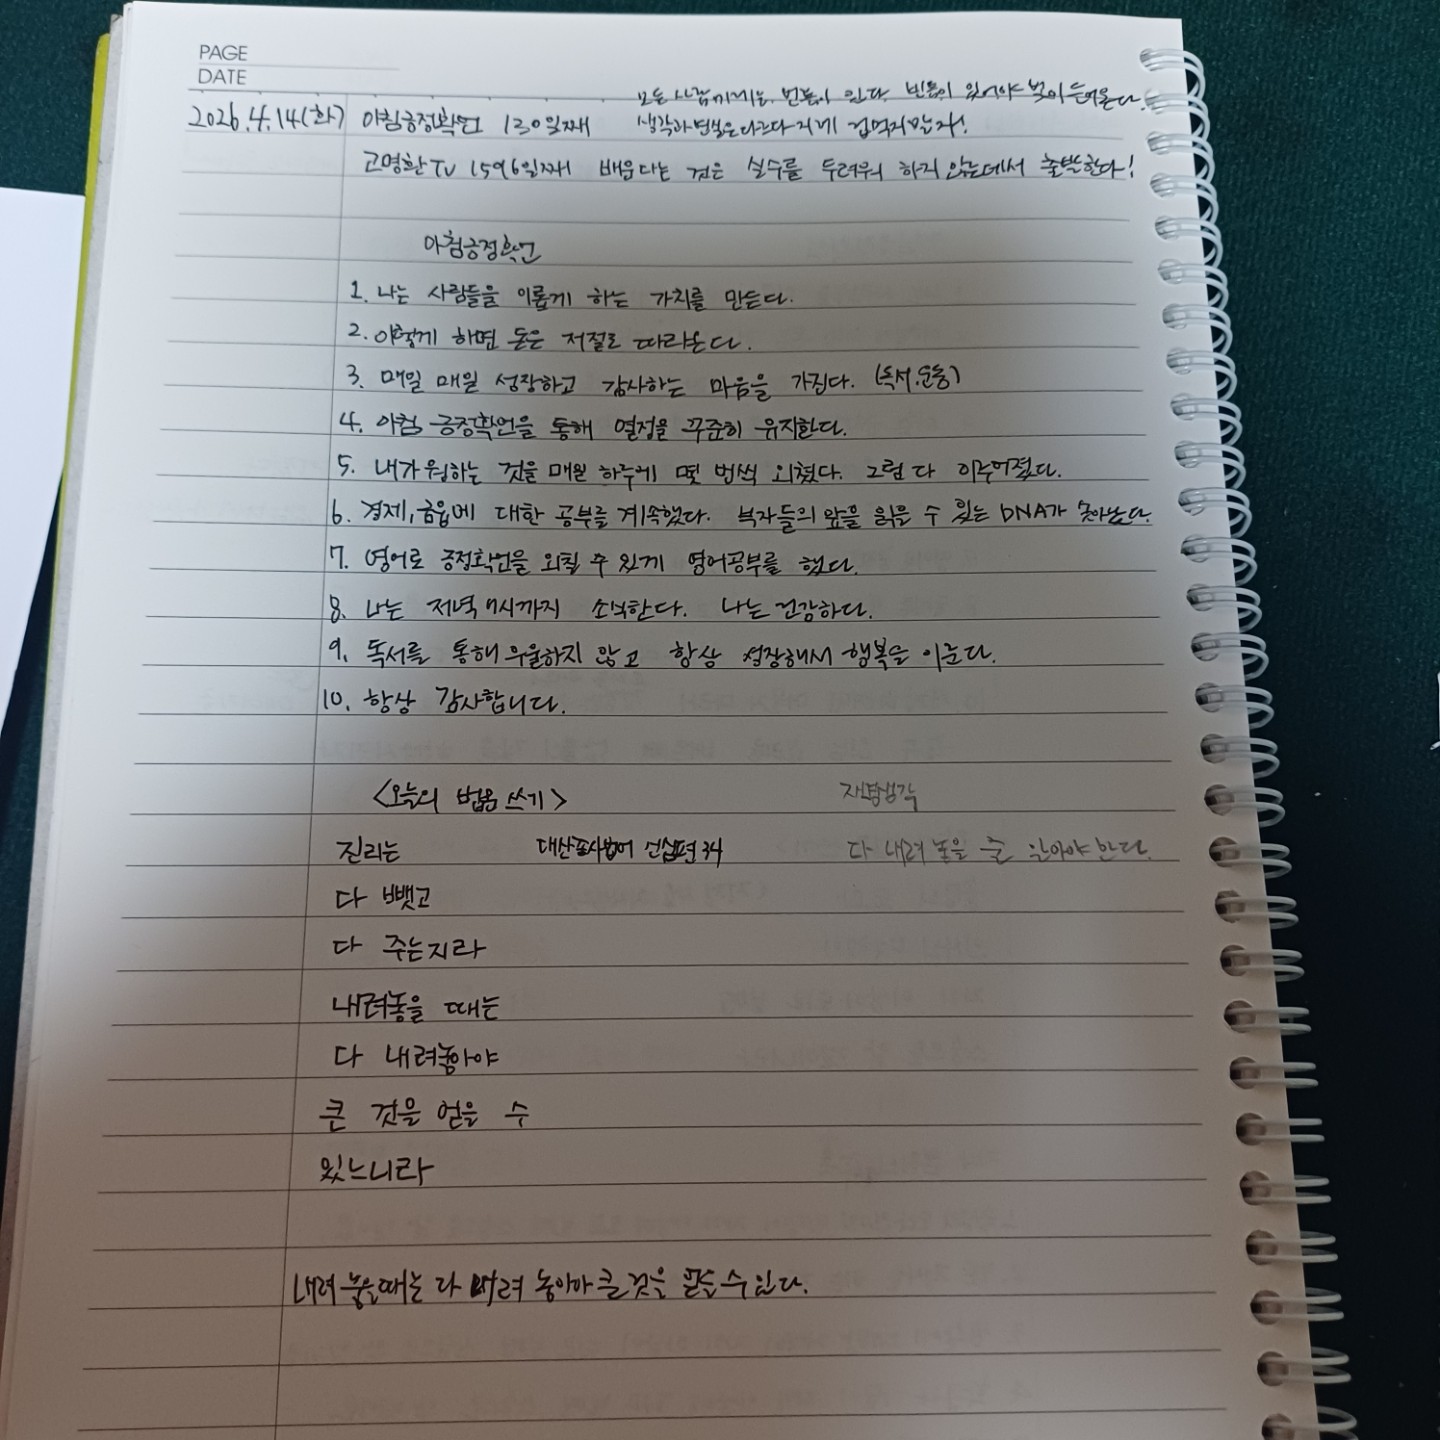 PAGE
DATE
모든 사람에게는 빈틈이 있다 빈틈이 있어야 빛이 들어온다.
2026.4.14(화) 아침긍정확언 130일째 생각과 현실은 다르다 미리 겁먹지 말자!
고명환TV 1596일째 배운다는 것은 실수를 두려워 하지 않는데서 출발한다!
아침긍정확언
1. 나는 사람들을 이롭게 하는 가치를 만든다.
2. 이렇게 하면 돈은 저절로 따라온다.
3. 매일 매일 성장하고 감사하는 마음을 가진다. (독서.운동)
4. 아침 긍정확언을 통해 열정을 꾸준히 유지한다.
5. 내가 원하는 것을 매일 하루에 몇 번씩 외쳤다. 그럼 다 이루어졌다.
6. 경제, 금융에 대한 공부를 계속했다. 부자들의 앞을 읽을 수 있는 DNA가 살아났다.
7. 영어로 긍정확언을 외칠 수 있게 영어공부를 했다.
8. 나는 저녁 7시까지 소식한다. 나는 건강하다.
9. 독서를 통해 우울하지 않고 항상 성장해서 행복을 이룬다.
10. 항상 감사합니다.
<오늘의 법음 쓰기> 자녀생각
진리는 대산종사법어 신심편 34 다 내려놓을 줄 알아야 한다.
다 뺏고
다 주는지라
내려놓을 때는
다 내려놓아야
큰 것을 얻을 수
있느니라
내려 놓을때는 다 내려 놓아야 큰 것을 얻을 수 있다.